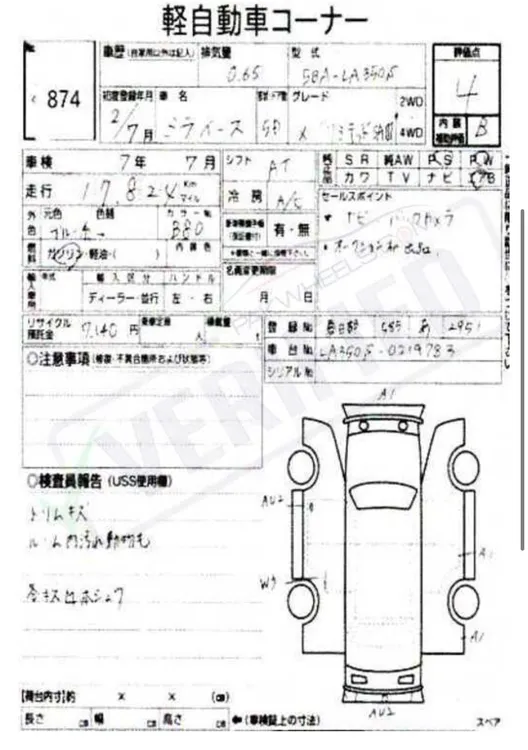 軽自動車コーナー
No. 874
車歴 (自家用以外は記入)
排気量 0.65
型式 5BA-LA350S
評価点 4
初度登録年月 2/7月
車名 ミライース
ドア 5D
グレード
2WD
4WD
内装補助評価 B
車検 7年 7月
シフト AT
SR 純AW PS PW
カワ TV ナビ エアB
走行 17,824 Km マイル
冷房 A/C
セールスポイント
ナビ バックカメラ
外色 元色 色替 カラーNo.
B80
有・無
燃料 ガソリン・軽油・( )
内装色
名義変更期限
月 日
輸入車用 年式 輸入区分 ハンドル
ディーラー・並行 左・右
リサイクル預託金 7,140円
乗車定員 人
積載量
登録No. 春日部 581 あ 2951
車台No. LA350S-0219783
シリアルNo.
○注意事項 (修復・不具合箇所および状態等)
○検査員報告 (USS使用欄)
トリムキズ
ルーム内汚れ動物毛
A1
AU2
W3
A1
A1
AU2
【荷台内寸】約 × × (cm)
長さ cm 幅 cm 高さ cm
←(車検証上の寸法)
スペア
PAKWHEELS.COM
VERIFIED